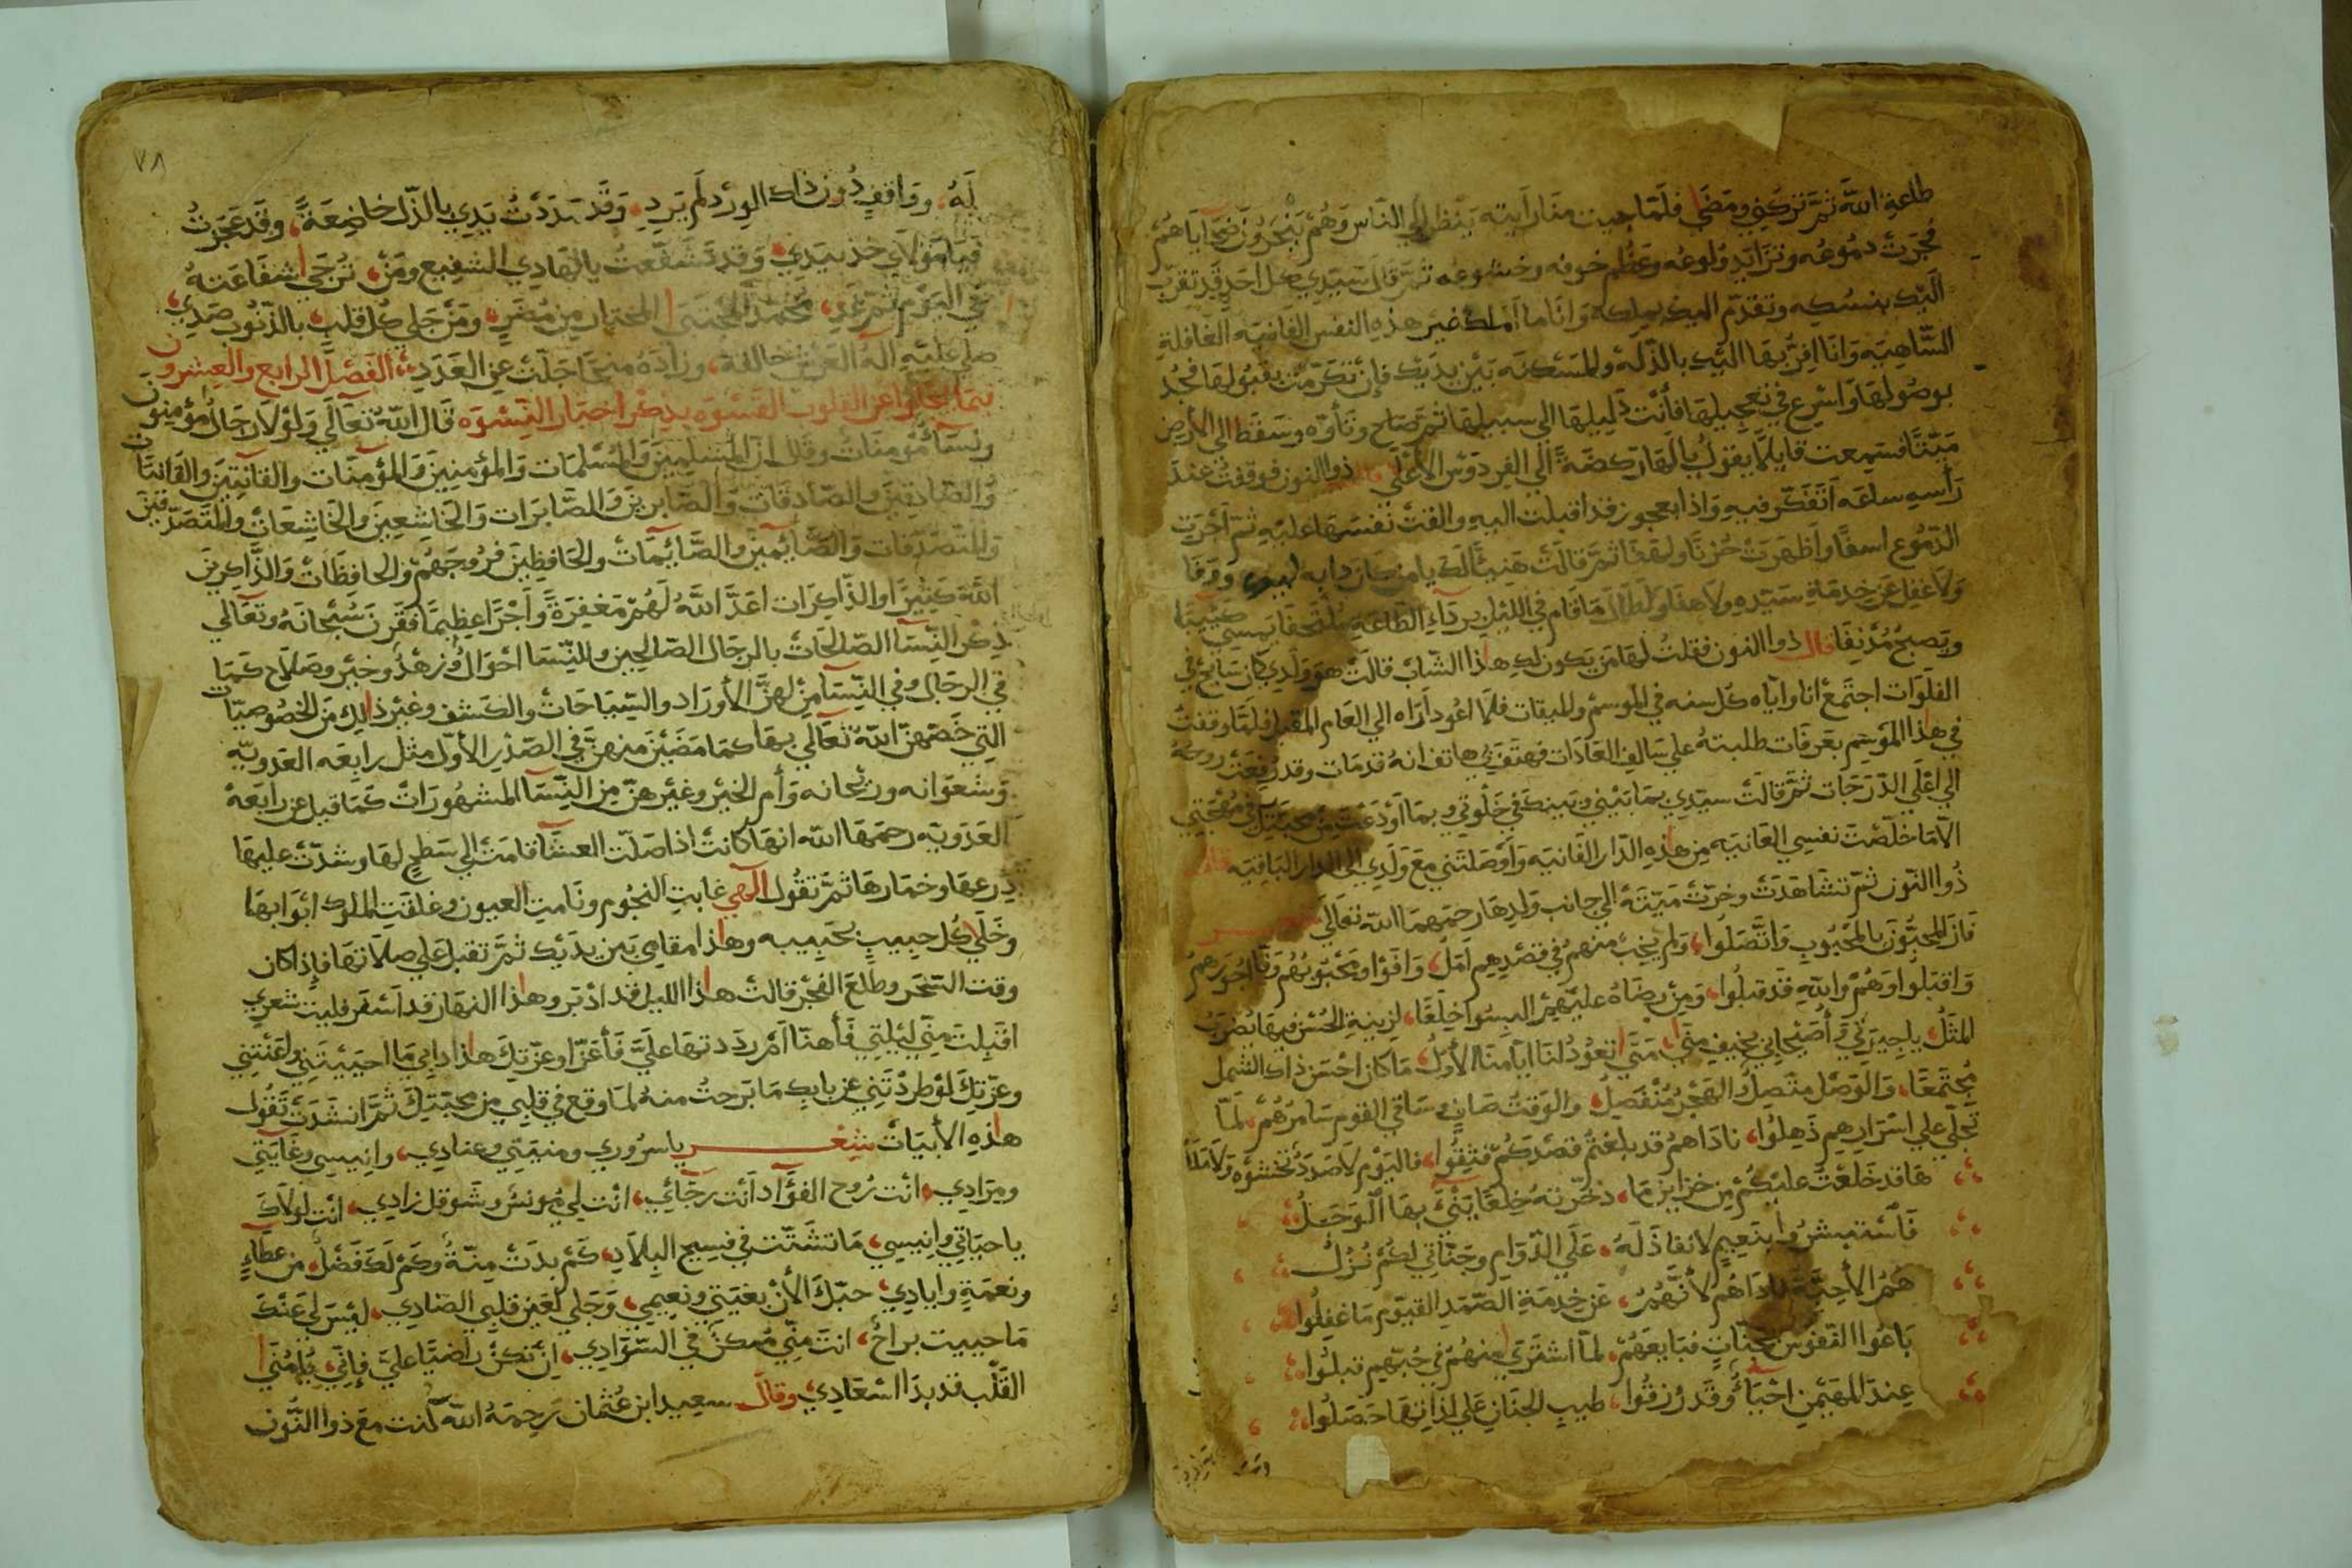 طاعة الله ثم تركني ومضى فلما جيت منا رايته ينظر الي الناس وهم ينحرون ضحاياهم
فجرت دموعه وتزايد ولوعه وعظم خوفه وخشوعه ثم قال سيدي كل احد قد تقرب
اليك بنسكه وتقدم اليك بملكه وانا ما املك غير هذه النفس الفانيه الغافلة
الساهيه وانا اقربها اليك بالذلة والمسكنه بين يديك فإن تكرمت بقبولها فجد
بوصولها واسرع في تعجيلها فأنت دليلها الي سبيلها ثم صاح وتأوه وسقط الي الارض
ميتا فسمعت قايلا يقول يالها ركضة الي الفردوس الأعلي قال ذوا النون فوقفت عند
رأسه ساعه اتفكر فيه واذا بعجوز قد اقبلت اليه والقت نفسها عليه ثم أجرت
الدموع اسفا واظهرت حزنا ولهفا ثم قالت هنيئا لك يا من كان دابه ووفا
ولا غفل عن خدمة سيده ولا هفا ولطال ما قام في الليل برداء الطاعه ملتحفا يمسي كئيبا
ويصبح مدنفا قال ذوا النون فقلت لها من يكون لك هاذا الشاب قالت هو ولدي كان سايح في
الفلوات اجتمع انا واياه كل سنه في الموسم والميقات فلما اعود أراه الي العام المقبل فلما وقفت
في هذا الموسم بعرفات طلبته علي سالف العادات فهتف بي هاتف انه قد مات وقد رفعت روحه
الي اعلي الدرجات ثم قالت سيدي بما بيني وبينك في خلوتي وبما أودعت من محبتك في مهجتي
الاما خلصت نفسي الفانيه من هاذه الدار الفانيه وأوصلتني مع ولدي الي الدار الباقيه قال
ذوا النون ثم تشاهدت وخرت ميتة الي جانب ولدها رحمهما الله تعالي شعر
فاز المحبون بالمحبوب واتصلوا، ولم يخب منهم في قصدهم امل، وافوا ومحبوبهم وفا اجورهم
واقبلوا وهم والله قد قبلوا، ومن رضاه عليهم البسوا خلعا، لزينة الحسن فيها يضرب
المثل، يا جيرتي وأصيحابي بخيف مني، متي تعود لنا ايامنا الأول، ما كان احسن ذاك الشمل
مجتمعا، والوصل متصل والهجر منفصل، والوقت صاف وساقي القوم سامرهم، لما
تجلي علي اسرارهم ذهلوا، ناداهم قد بلغتم قصدكم فثقوا، فاليوم لا صدد تخشوه ولا ملل
ها قد خلعت عليكم من خزاين ما، ذخرته خلعا يتني بها الوجل
فاستبشروا بنعيم لا نفاذ له، علي الدوام وجناتي لكم نزل
هم الأحبة ناداهم لأنهم، عن خدمة الصمد القيوم ما غفلوا
باعوا النفوس بجنات فبايعهم، لما اشتري منهم في حبهم قبلوا
عند المهيمن احياء وقد رزقوا، طيب الجنان علي لذاتها حصلوا
٧٨
له، وواقف دون ذاك الورد لم يرد، وقد مددت يدي بالذل خاضعة، وقد عجزت
فيا مولاي خذ بيدي، وقد تشفعت بالهادي الشفيع ومن، ترجي شفاعته
في اليوم ثم غد، محمد المجتبي المختار من مضر، ومن جلي كل قلب بالذنوب صدي،
صلي عليه اله العرش خالقه، وزاده منحا جلت عن العدد الفصل الرابع والعشرون
فيما القلوب القسوه بذكر اخبار النسوه قال الله تعالي ولولا رجال مؤمنون
ونسآ مؤمنات وقال ان المسلمين والمسلمات والمؤمنين والمؤمنات والقانتين والقانتات
والصادقين والصادقات والصابرين والصابرات والخاشعين والخاشعات والمتصدقين
والمتصدقات والصآئمين والصآئمات والحافظين فروجهم والحافظات والذاكرين
الله كثيرا والذاكرات اعد الله لهم مغفرة وأجرا عظيما فقرن سبحانه وتعالي
ذكر النسآ الصالحات بالرجال الصالحين وللنسا احوال وزهد وخير وصلاح كما
في الرجال وفي النسآ من لهن الأوراد والسياحات والكشف وغير ذالك من الخصوصيات
التي خصهن الله تعالي بها كما مضين منهن في الصدر الأول مثل رابعه العدويه
وشعوانه وريحانه وأم الخير وغيرهن من النسآ المشهورات كما قيل عن رابعة
العدويه رحمها الله انها كانت اذا صلت العشآ قامت الي سطح لها وشدت عليها
درعها وخمارها ثم تقول الهي غابت النجوم ونامت العيون وغلقت الملوك ابوابها
وخلي كل حبيب بحبيبه وهاذا مقامي بين يديك ثم تقبل علي صلاتها فإذا كان
وقت السحر وطلع الفجر قالت هاذا الليل قد ادبر وهاذا النهار قد أسفر فليت شعري
اقبلت مني ليلتي فأهنا ام رددتها علي فأعزا وعزتك هاذا دابي ما احييتني واعنتني
وعزتك لو طردتني عن بابك ما برحت منه لما وقع في قلبي من محبتك ثم انشدت تقول
هاذه الأبيات شعر يا سروري ومنيتي وعنادي، وانيسي وغايتي
ومرادي، انت روح الفؤآد انت رجآئي، انت لي مونس وشوقك زادي، انت لولاك
يا حياتي وانيسي، ما تشتت في فسيح البلاد، كم بدت منة وكم لك فضل، من عطآء
ونعمة وايادي، حبك الأن بغيتي ونعيمي، وجلي لعين قلبي الصادي، ليس لي عنك
ما حييت براح، انت مني ممكن في السوادي، ان تكن راضيا علي فإني، يا منا
القلب قد بدا اسعادي وقال سعيد ابن عثمان رحمه الله كنت مع ذوا النون